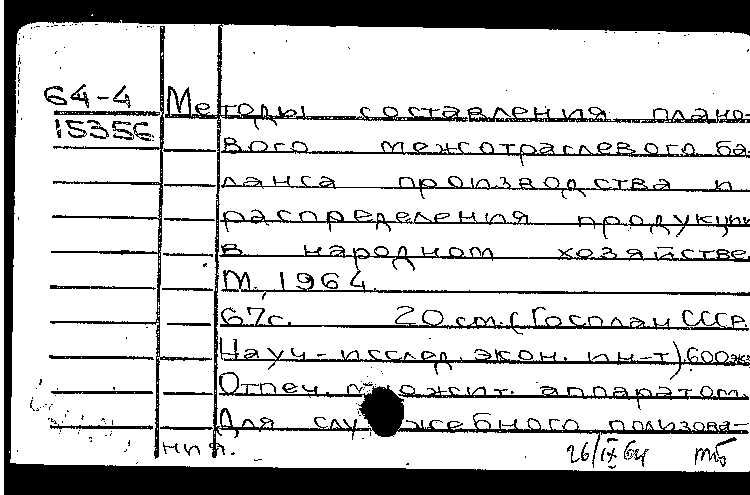 64-4 Методы составления плано-
15356 вого межотраслевого ба-
ланса производства и
распределения продукции
в народном хозяйстве
М., 1964.
67с. 20 см. (Госплан СССР.
Науч-исслед. экон. ин-т) 600 экз
Отпеч. множит. аппаратом.
Для служебного пользова-
ния. 26/IX 64